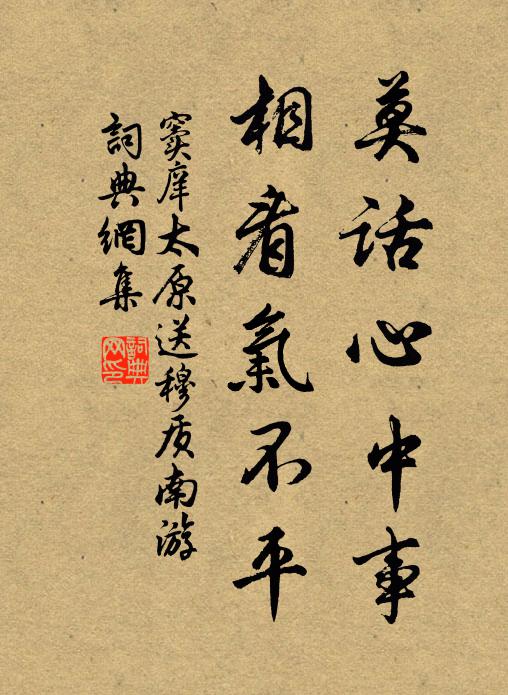 莫话心中事
相看氣不平
窦庠太原送穆质南游
詞典網集
詞典网印